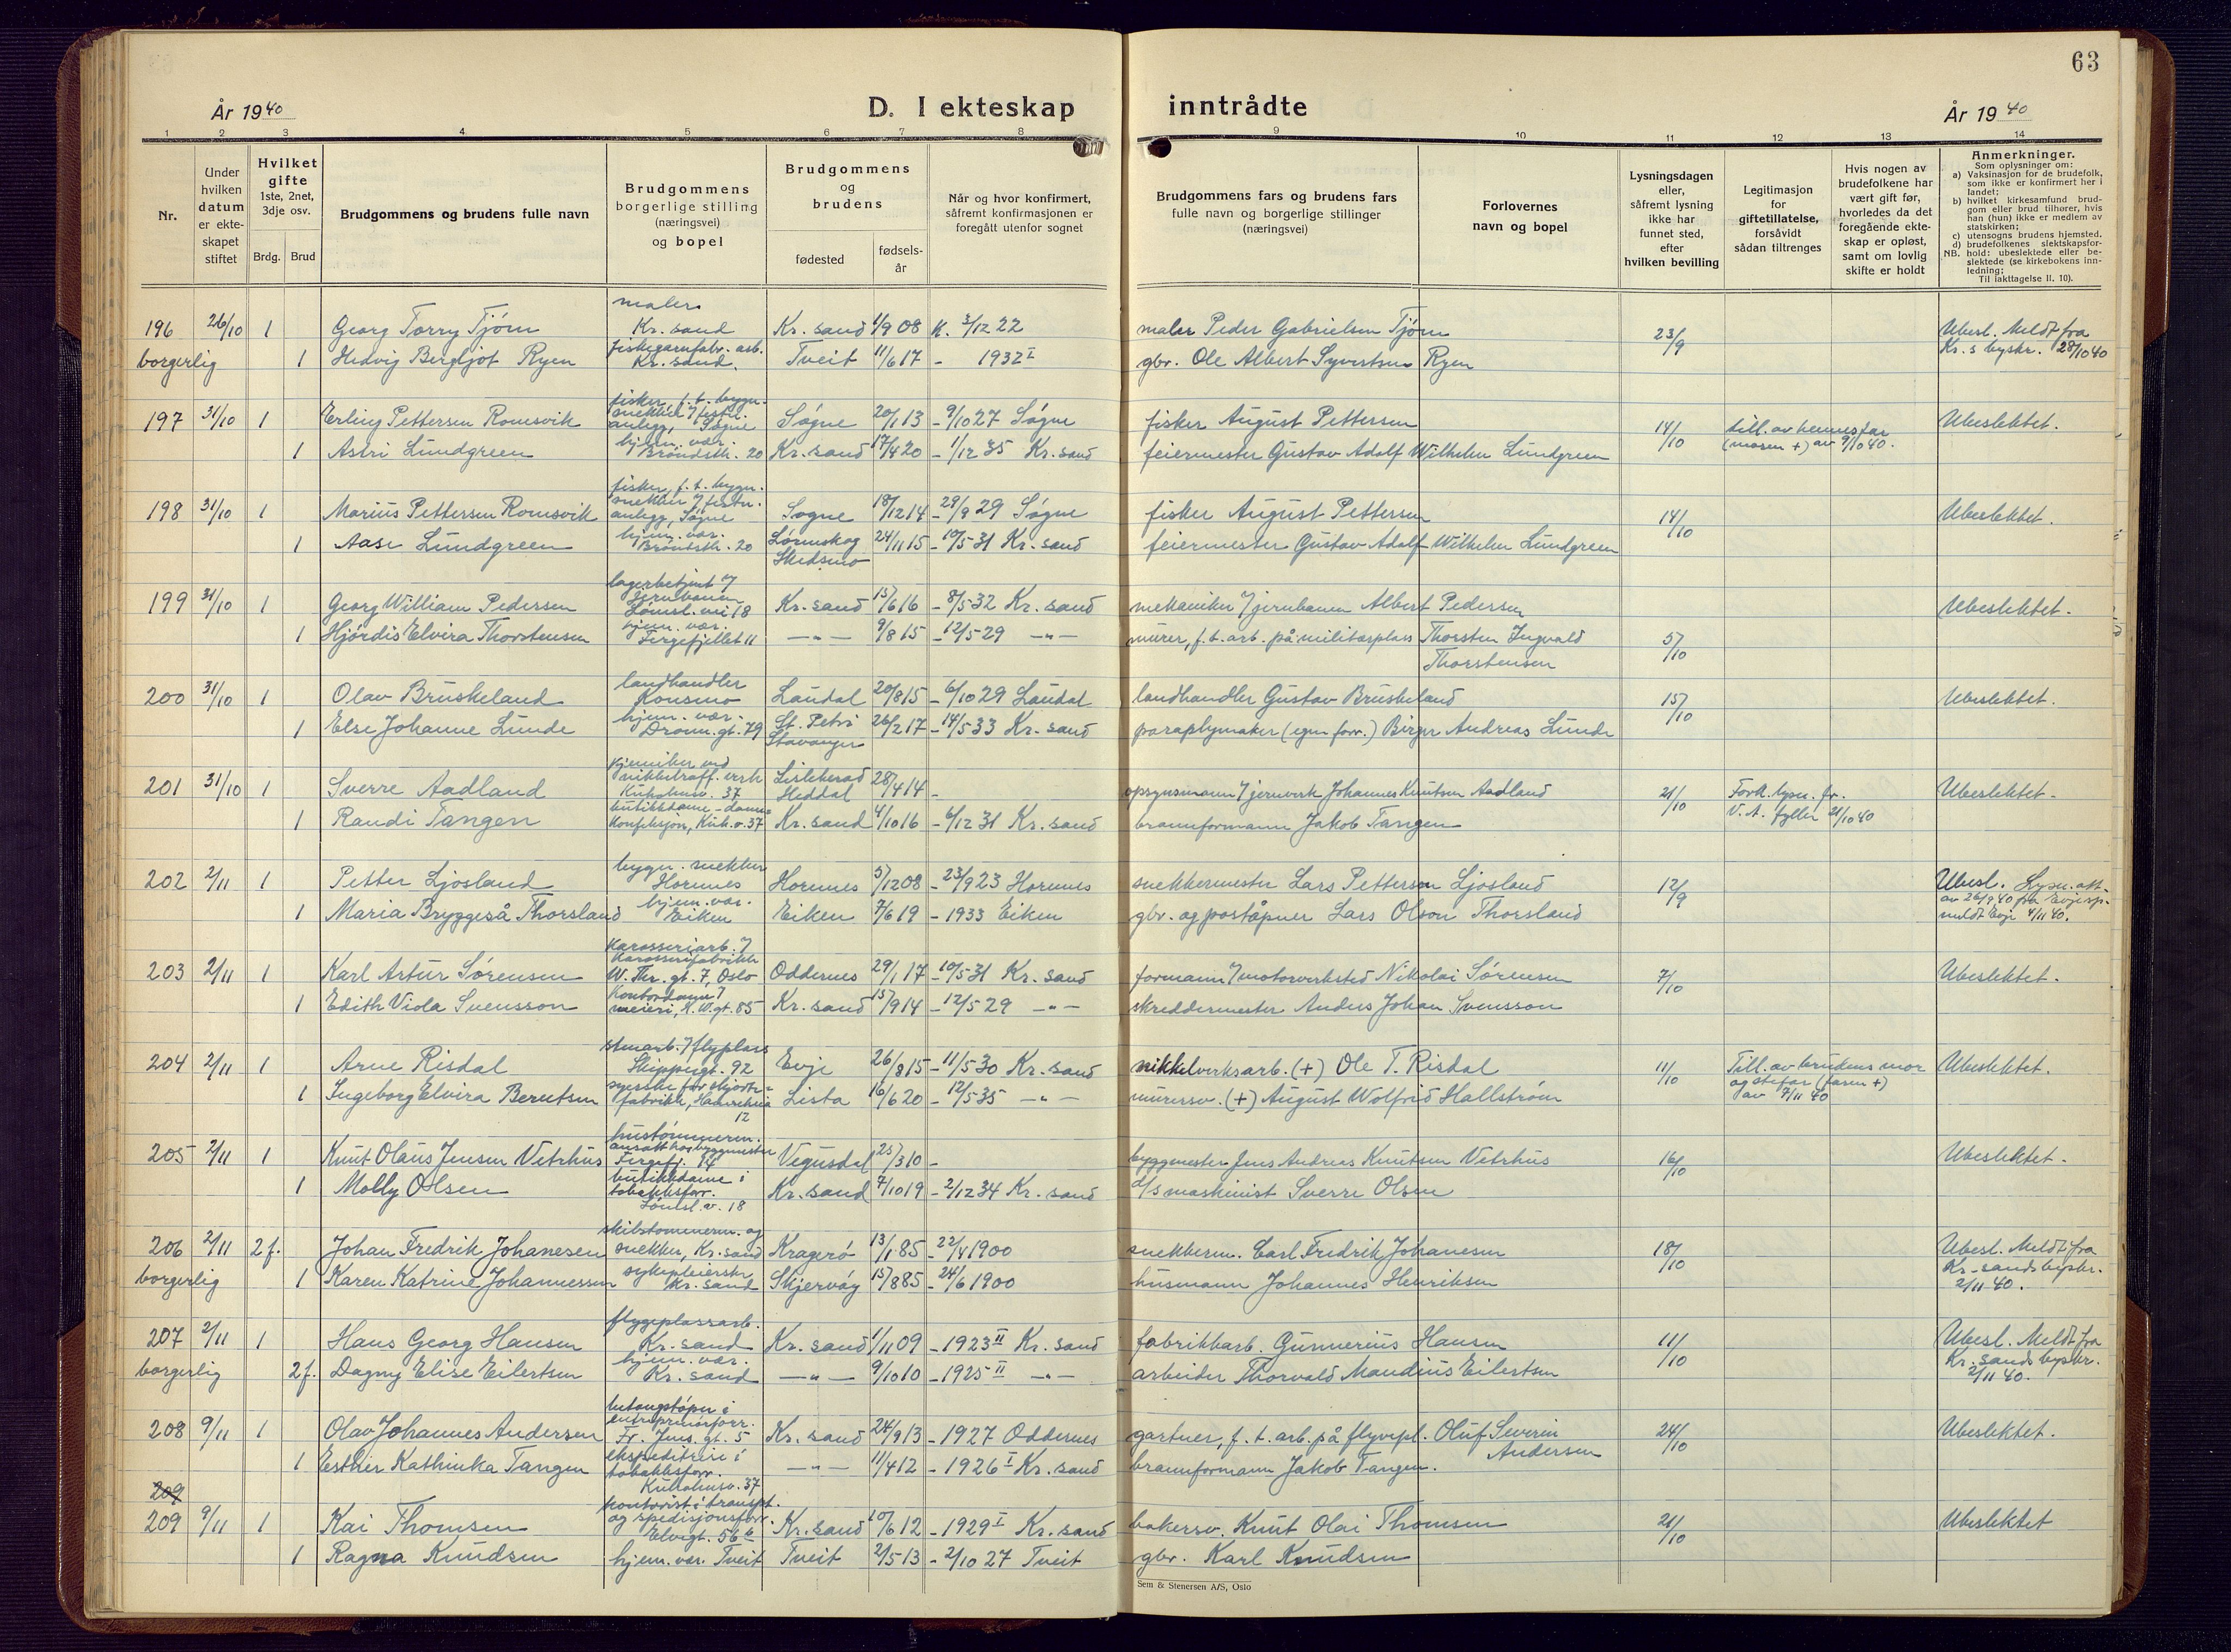 63
År 1940
D. I ekteskap
inntrådte
År 1940
1 2 3 4 5 6 7 8 9 10 11 12 13 14
Nr.
Under
hvilken
datum
er ekte-
skapet
stiftet
Hvilket
gifte
1ste, 2net,
3dje osv.
Brdg. Brud
Brudgommens og brudens fulle navn
Brudgommens
borgerlige stilling
(næringsvei)
og bopel
Brudgommens
og
brudens
fødested
fødsels-
år
Når og hvor konfirmert,
såfremt konfirmasjonen er
foregått utenfor sognet
Brudgommens fars og brudens fars
fulle navn og borgerlige stillinger
(næringsvei)
Forlovernes
navn og bopel
Lysningsdagen
eller,
såfremt lysning
ikke har
funnet sted,
efter
hvilken bevilling
Legitimasjon
for
giftetillatelse,
forsåvidt
sådan tiltrenges
Hvis nogen av
brudefolkene har
vært gift før,
hvorledes da det
foregående ekte-
skap er opløst,
samt om lovlig
skifte er holdt
Anmerkninger.
Som oplysninger om:
a) Vaksinasjon for de brudefolk,
som ikke er konfirmert her i
landet;
b) hvilket kirkesamfund brud-
gom eller brud tilhører, hvis
han (hun) ikke er medlem av
statskirken;
c) utensogns brudens hjemsted.
d) brudefolkenes slektskapsfor-
NB. hold: ubeslektede eller be-
slektede (se kirkebokens inn-
ledning;
Til iakttagelse II. 10).
maler
196 26/10 1 Georg Torry Tjöm Kr. sand Kr. sand 1/9 08 K. 3/12 22 maler Peder Gabrielsen Tjöm 23/9 Ubesl. Meldt fra
fiskegarnfabr. arb. Kr. s byskr. 28/10 40
borgerlig 1 Hedvig Bergljot Ryen Kr. sand. Tveit 11/6 17 - 1932 I gbr. Ole Albert Syvertsen Ryen
fisker, f. t. bygn.
snekker v/ festn.
197 31/10 1 Erling Pettersen Romsvik anlegg, Søgne Søgne 20/1 13 - 9/10 27 Søgne fisker August Pettersen 14/10 till. av hennes far Ubeslektet.
hjem. vær. (moren +) av 9/10 40.
1 Astri Lundgreen Bröndstr. 20 Kr. sand 17/4 20 - 1/12 35 Kr. sand feiermester Gustav Adolf Wilhelm Lundgreen
fisker, f. t. bygn.
snekker v/ festn.
198 31/10 1 Marius Pettersen Romsvik anlegg, Søgne Søgne 18/12 14 - 29/9 29 Søgne fisker August Pettersen 14/10 Ubeslektet.
hjem. vær.
1 Aase Lundgreen Bröndstr. 20 Lørenskog 24/11 15 - 10/5 31 Kr. sand feiermester Gustav Adolf Wilhelm Lundgreen
Skedsmo
lagerbetjent v/
jernbanen
199 31/10 1 Georg William Pedersen Lömsl. vei 18 Kr. sand 15/6 16 - 8/5 32 Kr. sand mekaniker v/ jernbanen Albert Pedersen 5/10 Ubeslektet.
hjem. vær.
1 Hjördis Elvira Thorstensen Fergefjellet 11 — " — 9/8 15 - 12/5 29 — " — murer, f. t. arb. på militærplass Thorsten Ingvald
Thorstensen
landhandler
200 31/10 1 Olav Bruskeland Konsmo Laudal 20/8 15 - 6/10 29 Laudal landhandler Gustav Bruskeland 15/10 Ubeslektet.
hjem. vær.
1 Else Johanne Lunde Dronn. gt. 79 St. Petri 26/2 17 - 14/5 33 Kr. sand paraplymaker (egen forr.) Birger Andreas Lunde
Stavanger
kjemiker ved
nikkelraff. verk
201 31/10 1 Sverre Aadland Kuholmsv. 37 Lisleherad 28/4 14 - opsynsmann v/ jernverk Johannes Knutsen Aadland 21/10 Fork. lysn. fr. Ubeslektet.
butikkdame - dame- Heddal V. A. Fyller 21/10 40
1 Randi Tangen konfeksjon, Kuh. v. 37 Kr. sand 4/10 16 - 6/12 31 Kr. sand brannformann Jakob Tangen
bygn. snekker
202 2/11 1 Petter Ljosland Hornnes Hornnes 5/12 08 - 23/9 23 Hornnes snekkermester Lars Petterson Ljosland 12/9 Ubesl. Lysn. att.
hjem. vær. av 26/9 40 fra Evje sp.
1 Maria Bryggeså Thorsland Eiken Eiken 7/6 19 - 1933 Eiken gbr. og poståpner Lars Olson Thorsland meldt Evje 4/11 40.
Karosseriarb. v/
karosserifabrikk
203 2/11 1 Karl Artur Sörensen W. Thr. gt. 7, Oslo Oddernes 29/1 17 - 10/5 31 Kr. sand formann v/ motorverksted Nikolai Sörensen 7/10 Ubeslektet.
Kontordame v/
1 Edith Viola Svensson meieri, K. W. gt. 85 Kr. sand 15/9 14 - 12/5 29 — " — skreddermester Anders Johan Svensson
stenarb. v/ flyplass
204 2/11 1 Arne Risdal Skippergt. 92 Evje 26/8 15 - 11/5 30 Kr. sand nikkelverksarb. (+) Ole T. Risdal 11/10 Till. av brudens mor Ubeslektet.
syerske for skjorte- og stefar (faren +)
1 Ingeborg Elvira Berntsen fabrikk, Henrikstia Lista 16/6 20 - 12/5 35 — " — murersv. (+) August Wolfrid Hallström av 7/11 40
12
hustömmerm.
ansatt hos byggmester
205 2/11 1 Knut Olaus Jensen Vetrhus Fergefj. 14 Vegusdal 25/3 10 - byggmester Jens Andreas Knutsen Vetrhus 16/10 Ubeslektet.
butikkdame i
1 Molly Olsen tobakksforr. Kr. sand 7/10 19 - 2/12 34 Kr. sand d/s maskinist Sverre Olsen
Lömsl. v. 18
skibstömmerm. og
206 2/11 2 f. Johan Fredrik Johanesen snekker, Kr. sand Kragerö 13/1 85 - 22/4 1900 snekkerm. Carl Fredrik Johanesen 18/10 Ubesl. Meldt fra
sykepleierske Kr. sands byskr.
borgerlig 1 Karen Katrine Johannessen Kr. sand Skjervöy 15/8 85 - 24/6 1900 husmann Johannes Henriksen 2/11 40.
flyveplassarb.
207 2/11 1 Hans Georg Hansen Kr. sand Kr. sand 1/11 09 - 1923 II Kr. sand fabrikkarb. Gunnerius Hansen 11/10 Ubesl. Meldt fra
hjem. vær. Kr. sands byskr.
borgerlig 2 f. Dagny Elise Eilertsen Kr. sand — " — 9/10 10 - 1925 II — " — arbeider Thorvald Mandius Eilertsen 2/11 40.
betongstöper i
entreprenörforr.
208 9/11 1 Olav Johannes Andersen Fr. Jens. gt. 5 Kr. sand 24/9 13 - 1927 Oddernes gartner, f. t. arb. på flyvepl. Oluf Severin 24/10 Ubeslektet.
ekspeditrise i Andersen
1 Esther Kathinka Tangen tobakksforr. — " — 11/4 12 - 1926 I Kr. sand brannformann Jakob Tangen.
209 Kuholmsv. 37
kontorist i transpt.
og spedisjonsforr.
209 9/11 1 Kai Thomsen Elvegt. 56 b Kr. sand 10/6 12 - 1929 I Kr. sand bakersv. Knut Olai Thomsen 21/10 Ubeslektet
1 Ragna Knudsen hjem. vær. Tveit Tveit 2/5 13 - 2/10 27 Tveit gbr. Karl Knudsen
Sem & Stenersen A/S, Oslo